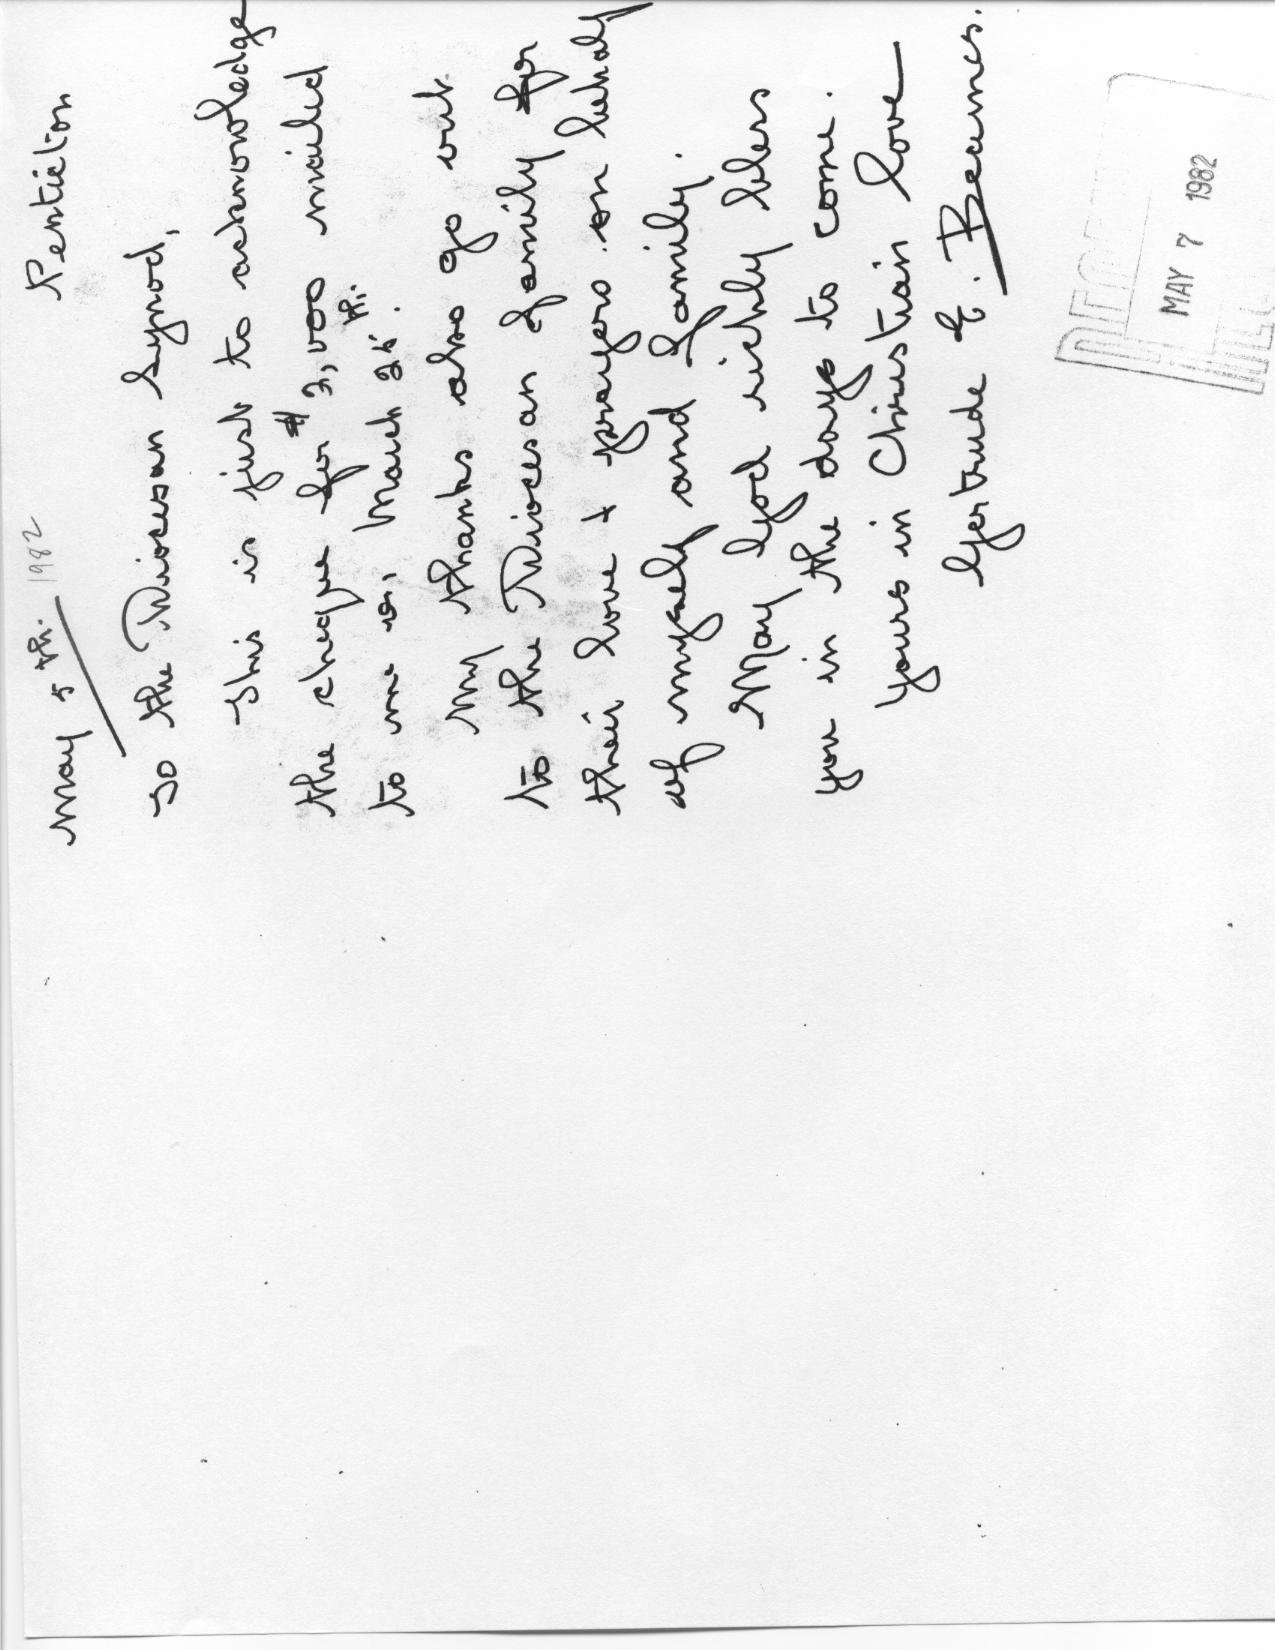 May 5 th. 1982 Penticton
To the Diocesan Synod,
This is just to acknowledge
the cheque for $ 2,000 mailed
to me on, March 25 th.
My thanks also go out
to the Diocesan Family for
their love + prayers on behalf
of myself and Family.
May God richly bless
you in the days to come.
Yours in Christian love
Gertrude E. Beames.
MAY 7 1982